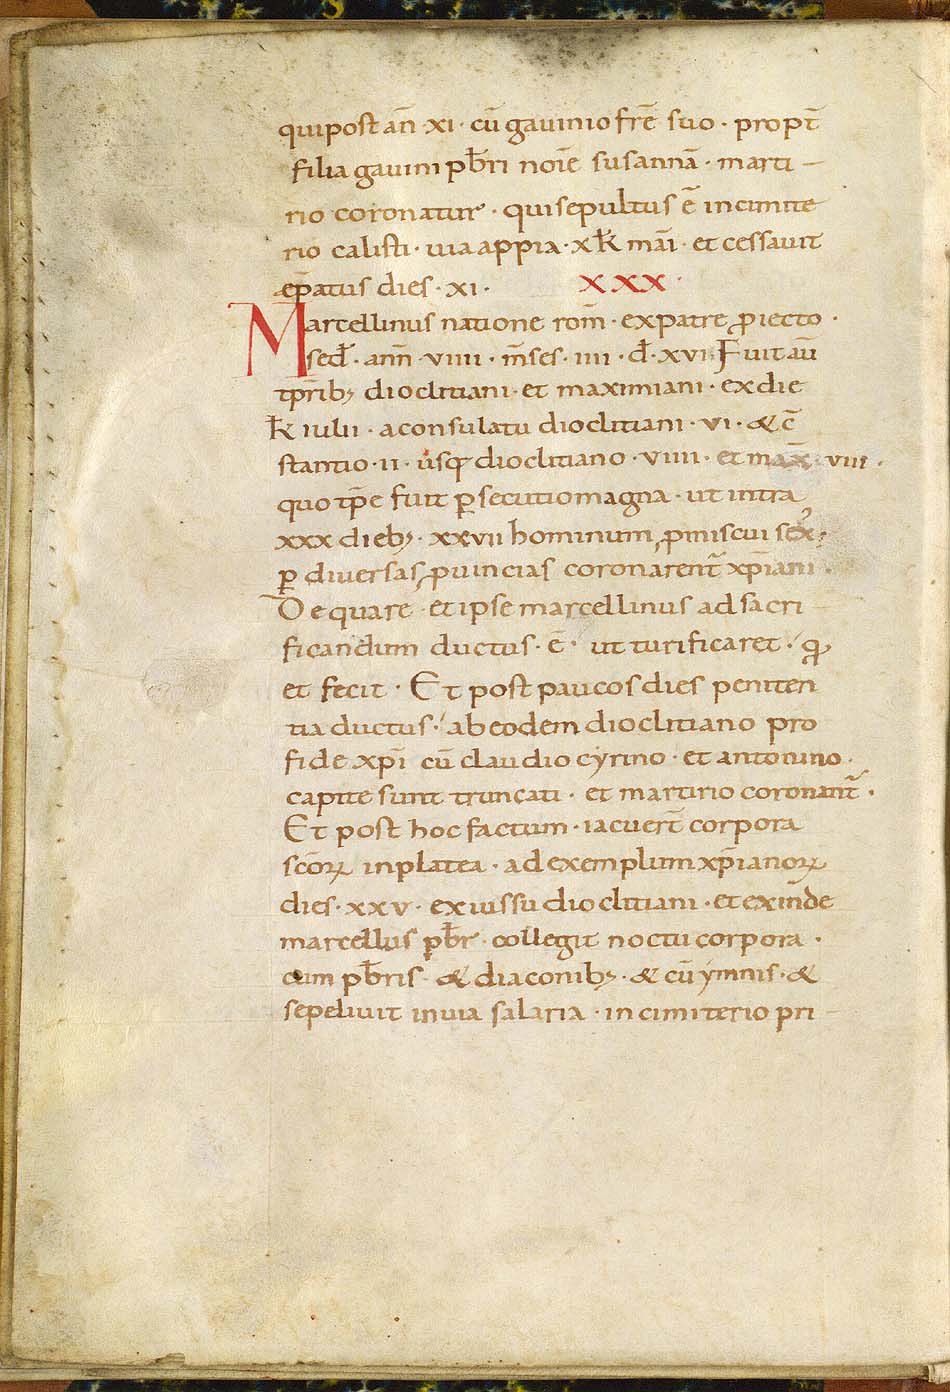 qui post an̄ · xi · cū gauinio fr̄e suo · propt̄
filia gauini pb̄ri noīe susannā · marti
rio coronatur · qui sepultus ē in cimite
rio calisti · uia appia · x k̄ maī · et cessauit
ep̄atus dies · xi · xxx ·
Marcellinus natione rom̄ · ex patre ꝓiecto ·
sed̄ · ann̄ · viiii · m̄ses · iiii · d̄ · xvi · Fuit aū
tp̄rib; dioclitiani · et maximiani · ex die
k̄ iulii · a consulatu dioclitiani · vi · & c̄
stantio · ii · usq; dioclitiano · viiii · et max̄ · viii ·
quo tp̄e fuit ꝑsecutio magna · ut intra
xxx dieb; · xxvii hominum ꝓmiscui sex;
ꝑ diuersas ꝓuincias coronarent̄ xp̄iani ·
De qua re · et ipse marcellinus ad sacri
ficandum ductus · ē · ut turificaret · qđ
et fecit · Et post paucos dies peniten
tia ductus · ab eodem dioclitiano pro
fide xp̄i cū claudio cyrino · et antonino ·
capite sunt truncati · et martirio coronant̄ ·
Et post hoc factum · iacuer̄t corpora
sc̄oꝝ in platea · ad exemplum xp̄ianoꝝ
dies · xxv · ex iussu dioclitiani · et exinde
marcellus pb̄r · collegit noctu corpora ·
cum pb̄ris · & diaconib; · & cū ymnis · &
sepeliuit in uia salaria · in cimiterio pri